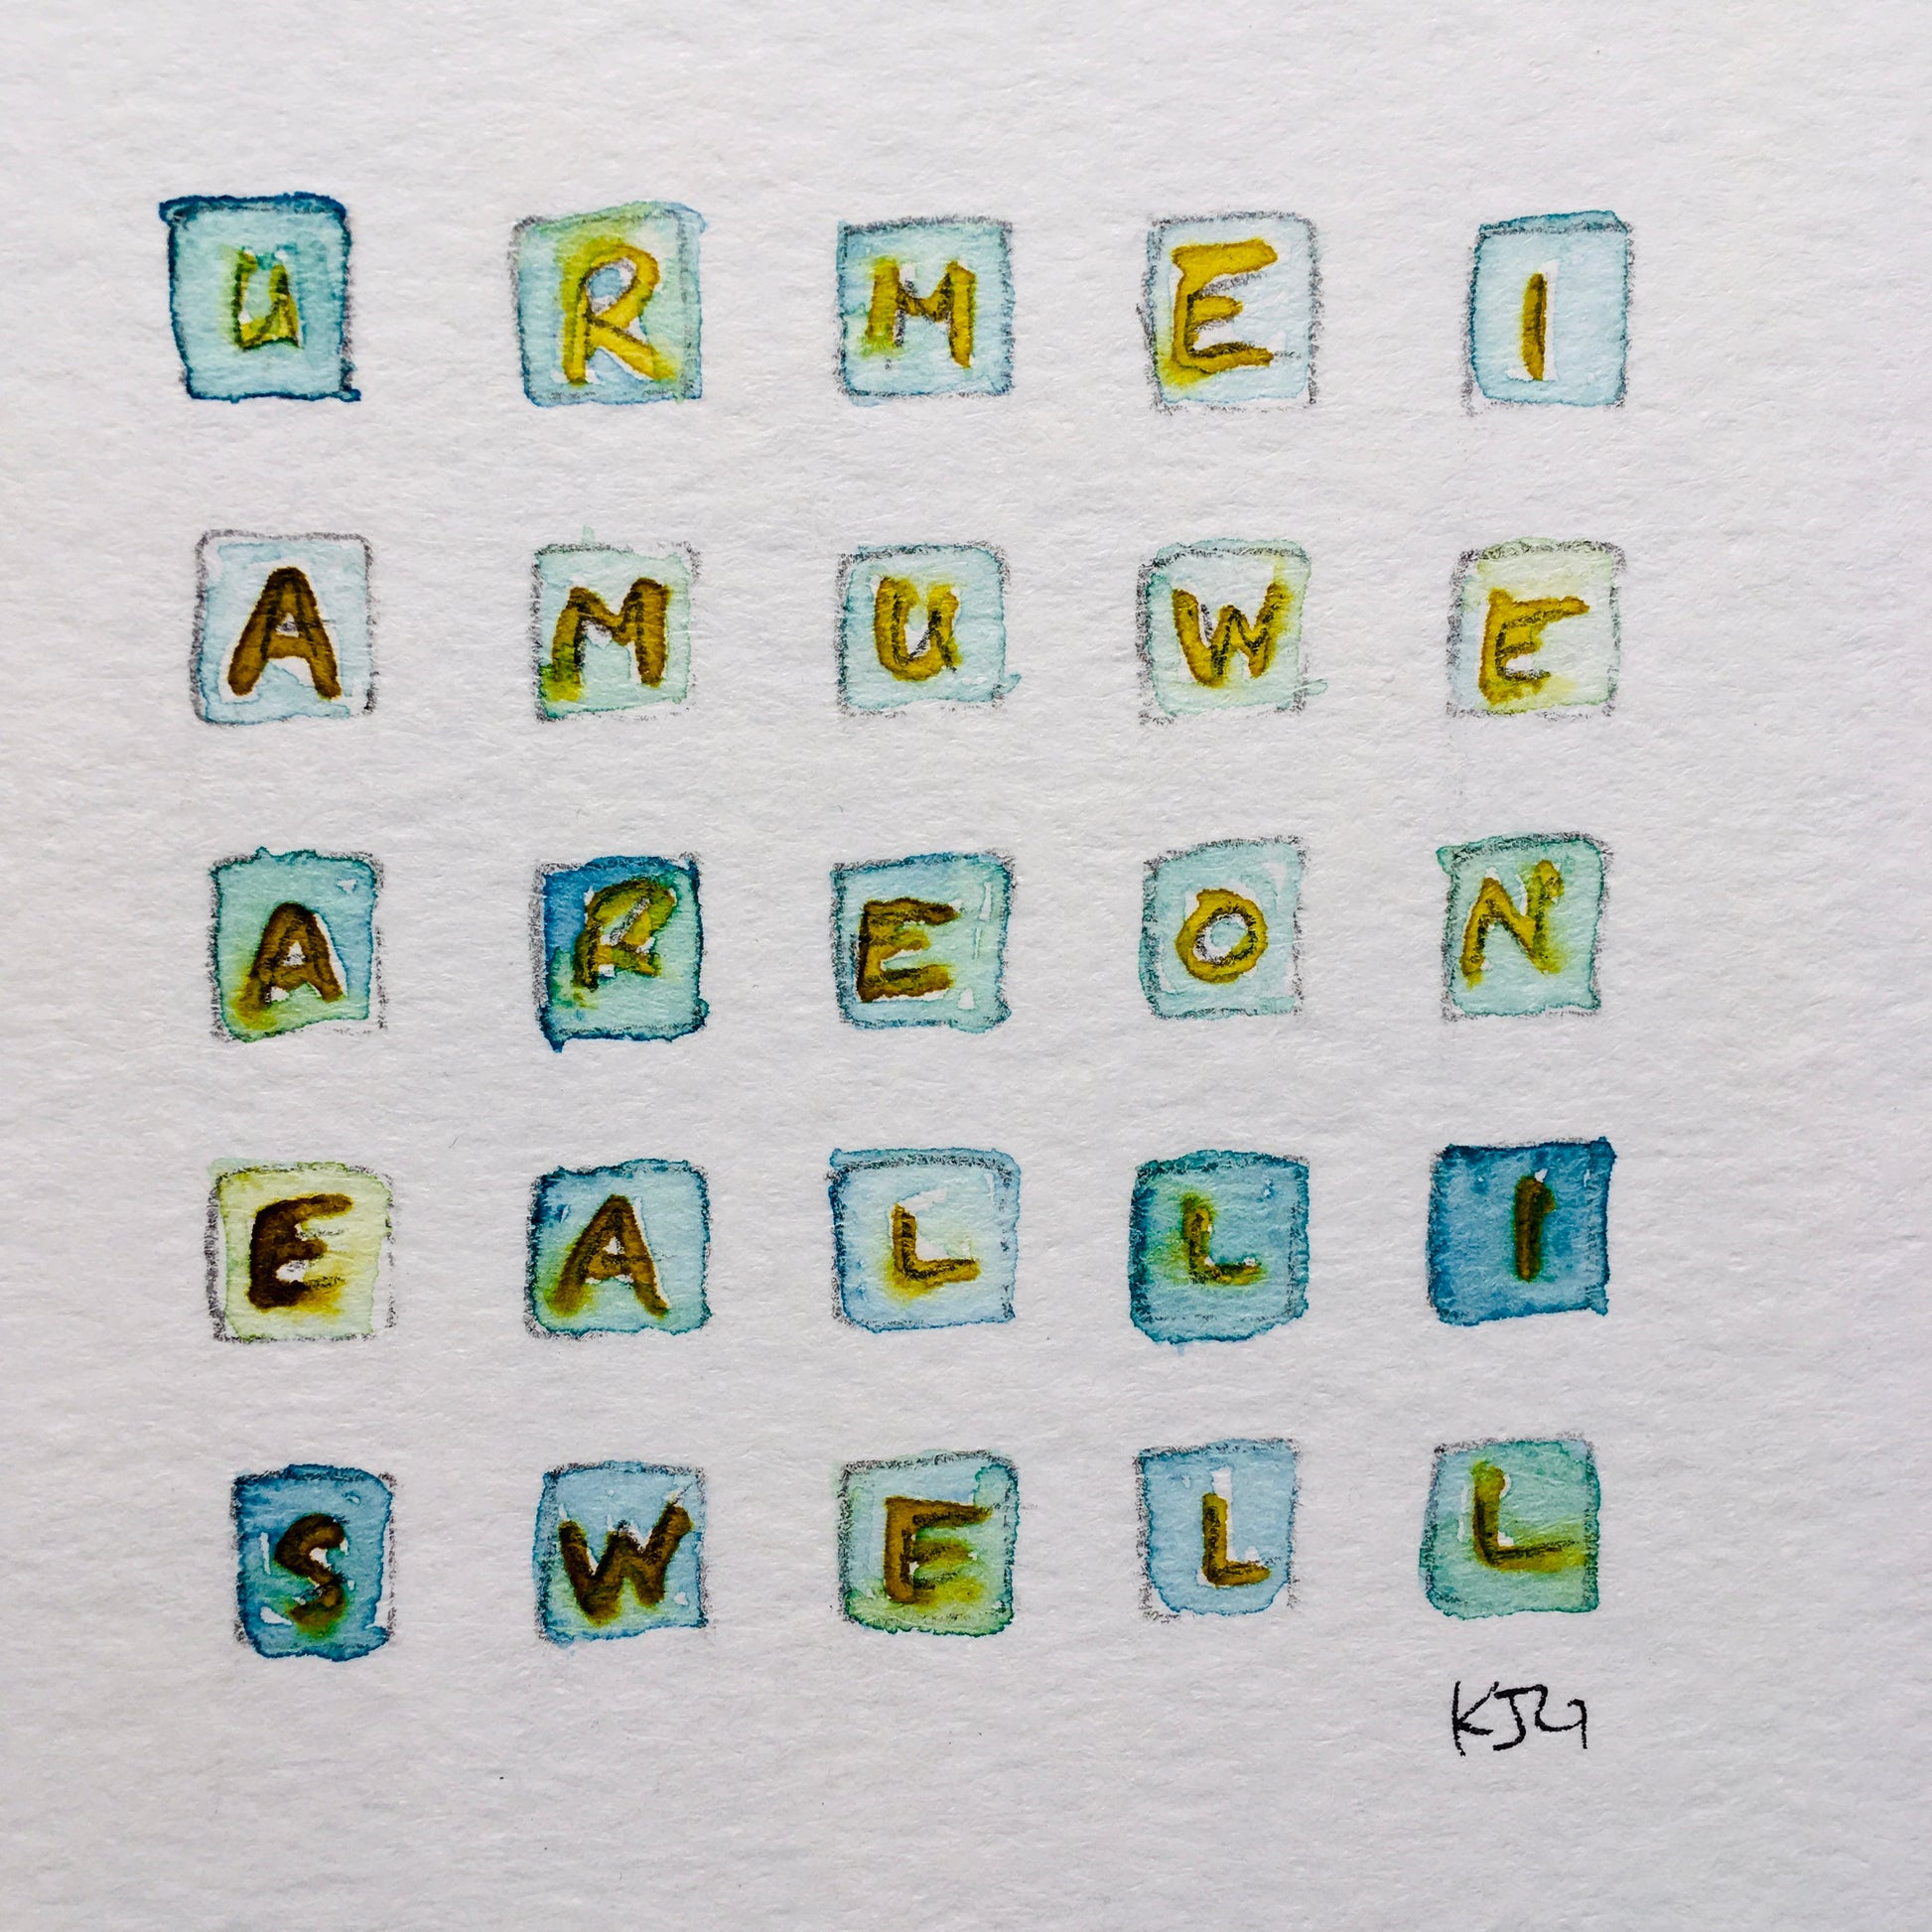 U R M E I
A M U W E
A R E O N
E A L L I
S W E L L
KJG